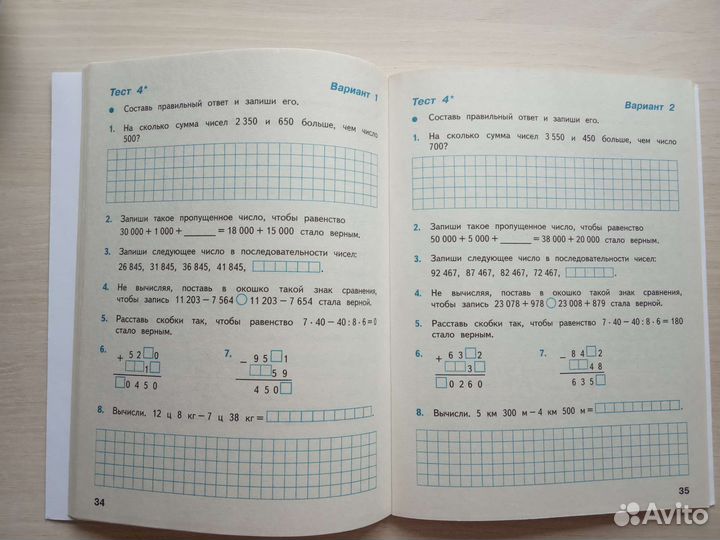 Тест 4*
Вариант 1
● Составь правильный ответ и запиши его.
1. На сколько сумма чисел 2 350 и 650 больше, чем число
500?
2. Запиши такое пропущенное число, чтобы равенство
30 000 + 1 000 + ______ = 18 000 + 15 000 стало верным.
3. Запиши следующее число в последовательности чисел:
26 845, 31 845, 36 845, 41 845, □□□□□□.
4. Не вычисляя, поставь в окошко такой знак сравнения,
чтобы запись 11 203 − 7 564 ○ 11 203 − 7 654 стала верной.
5. Расставь скобки так, чтобы равенство 7 · 40 − 40 : 8 · 6 = 0
стало верным.
6. + 5 2 □ 0
□ □ 1 □
□ 0 4 5 0
7. − 9 5 □ 1
□ □ 5 9
4 5 0 □
8. Вычисли. 12 ц 8 кг − 7 ц 38 кг = □□□□□□□□□.
34
Тест 4*
Вариант 2
● Составь правильный ответ и запиши его.
1. На сколько сумма чисел 3 550 и 450 больше, чем число
700?
2. Запиши такое пропущенное число, чтобы равенство
50 000 + 5 000 + ______ = 38 000 + 20 000 стало верным.
3. Запиши следующее число в последовательности чисел:
92 467, 87 467, 82 467, 72 467, □□□□□.
4. Не вычисляя, поставь в окошко такой знак сравнения,
чтобы запись 23 078 + 978 ○ 23 008 + 879 стала верной.
5. Расставь скобки так, чтобы равенство 7 · 40 − 40 : 8 · 6 = 180
стало верным.
6. + 6 3 □ 2
□ □ 3 □
□ 0 2 6 0
7. − 8 4 □ 2
□ □ 4 8
6 3 5 □
8. Вычисли. 5 км 300 м − 4 км 500 м = □□□□□□□□□.
35
Avito